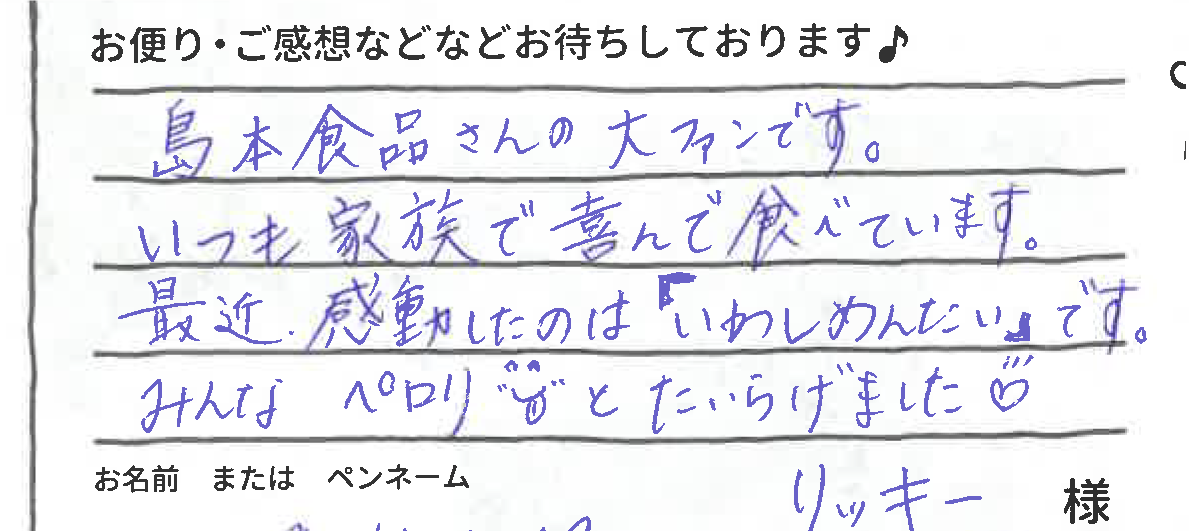 お便り・ご感想などなどお待ちしております♪
島本食品さんの大ファンです。
いつも家族で喜んで食べています。
最近、感動したのは『いわしめんたい』です。
みんなペロリとたいらげました♡
お名前 または ペンネーム
リッキー 様